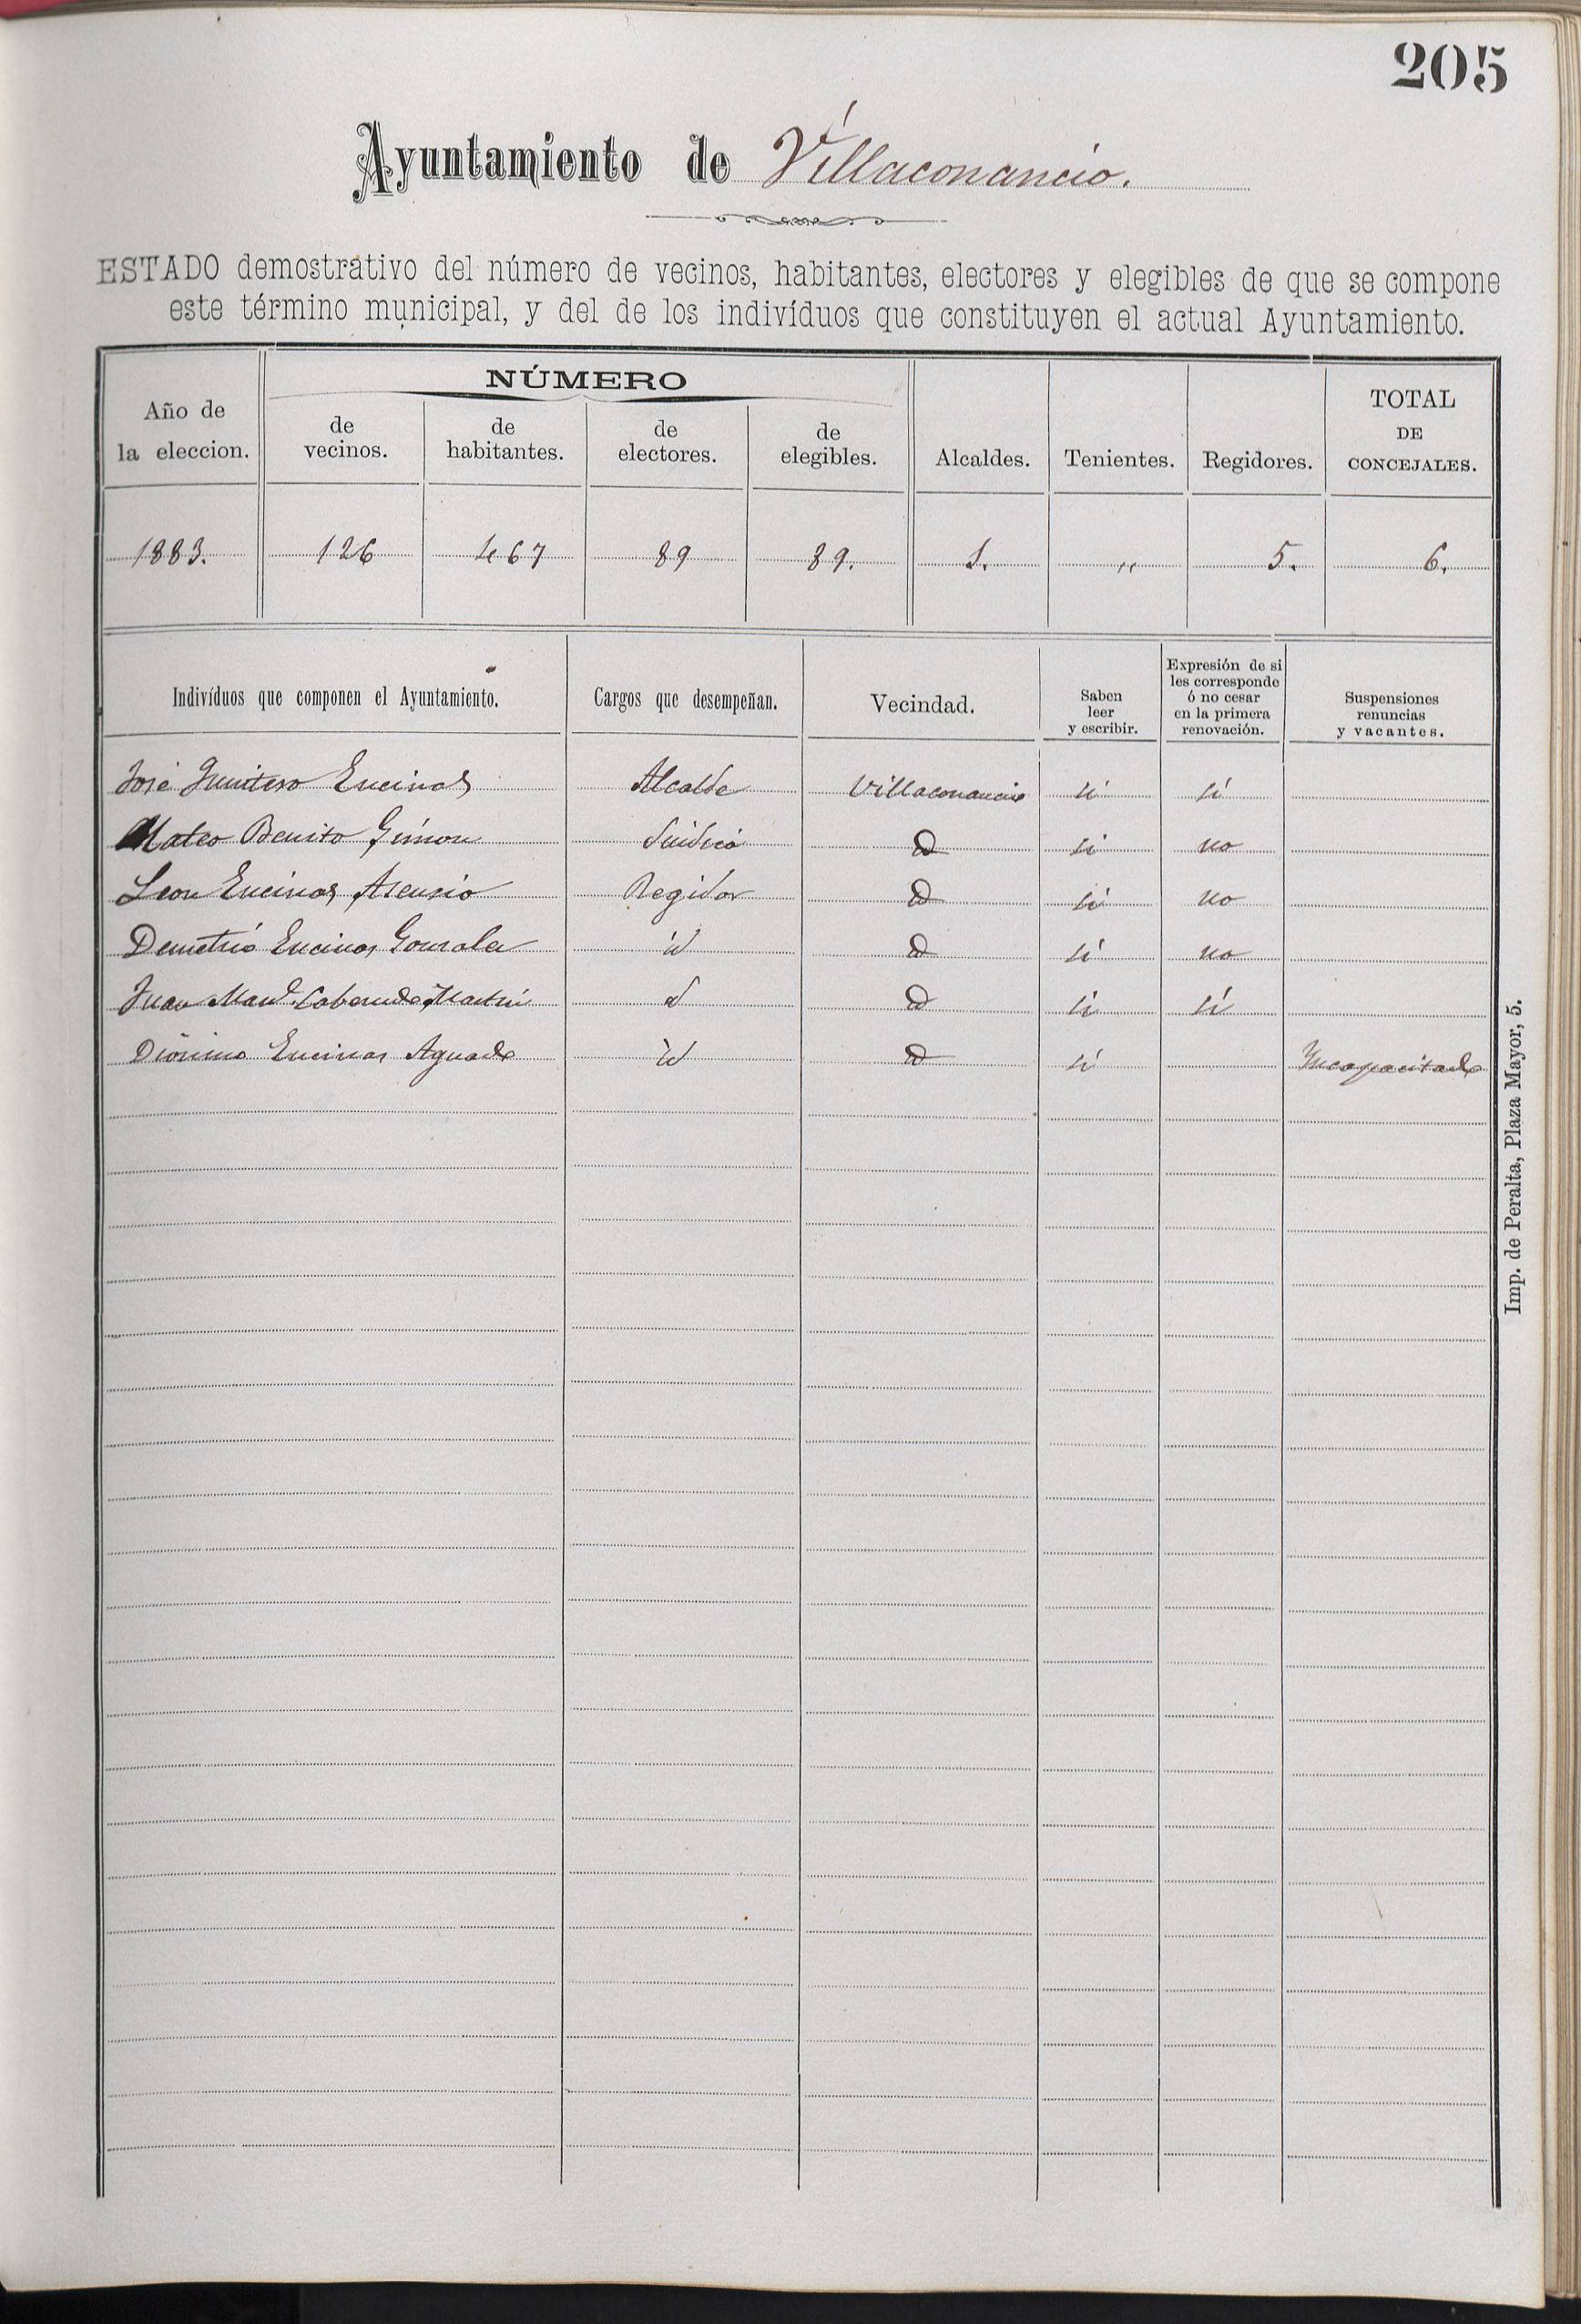 205
Ayuntamiento de Villaconancio.
ESTADO demostrativo del número de vecinos, habitantes, electores y elegibles de que se compone
este término municipal, y del de los indivíduos que constituyen el actual Ayuntamiento.
Año de la eleccion. NÚMERO de vecinos. de habitantes. de electores. de elegibles. Alcaldes. Tenientes. Regidores. TOTAL DE CONCEJALES.
1883. 126 467 89 89. 1. " 5. 6.
Indivíduos que componen el Ayuntamiento. Cargos que desempeñan. Vecindad. Saben leer y escribir. Expresión de si les corresponde ó no cesar en la primera renovación. Suspensiones renuncias y vacantes.
José Encinas Alcalde Villaconancio si si
Mateo Benito Simon Sindico id si no
Leon Encinas Asensio Regidor id si no
Demetrio Encinas Gonzalez id id si no
Juan Man.l Martin id id si si
Dionisio Encinas Aguado id id si Yncapacitado
Imp. de Peralta, Plaza Mayor, 5.